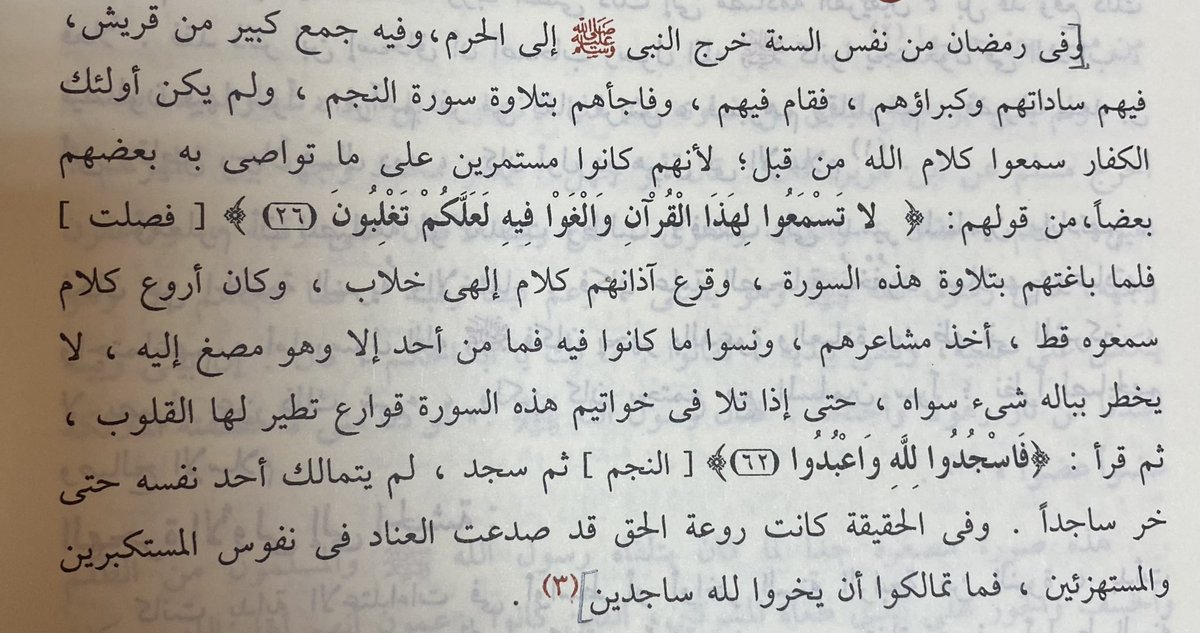 وفى رمضان من نفس السنة خرج النبى ﷺ إلى الحرم، وفيه جمع كبير من قريش،
فيهم ساداتهم وكبراؤهم ، فقام فيهم ، وفاجأهم بتلاوة سورة النجم ، ولم يكن أولئك
الكفار سمعوا كلام الله من قبل؛ لأنهم كانوا مستمرين على ما تواصى به بعضهم
بعضاً،من قولهم: ﴿ لا تَسْمَعُوا لِهَذَا الْقُرْآنِ وَالْغَوْا فِيهِ لَعَلَّكُمْ تَغْلِبُونَ (٢٦) ﴾ [ فصلت ]
فلما باغتهم بتلاوة هذه السورة ، وقرع آذانهم كلام إلهى خلاب ، وكان أروع كلام
سمعوه قط ، أخذ مشاعرهم ، ونسوا ما كانوا فيه فما من أحد إلا وهو مصغ إليه ، لا
يخطر بباله شىء سواه ، حتى إذا تلا فى خواتيم هذه السورة قوارع تطير لها القلوب ،
ثم قرأ : ﴿فَاسْجُدُوا لِلَّهِ وَاعْبُدُوا (٦٢)﴾ [ النجم ] ثم سجد ، لم يتمالك أحد نفسه حتى
خر ساجداً . وفى الحقيقة كانت روعة الحق قد صدعت العناد فى نفوس المستكبرين
والمستهزئين ، فما تمالكوا أن يخروا لله ساجدين (٣) .